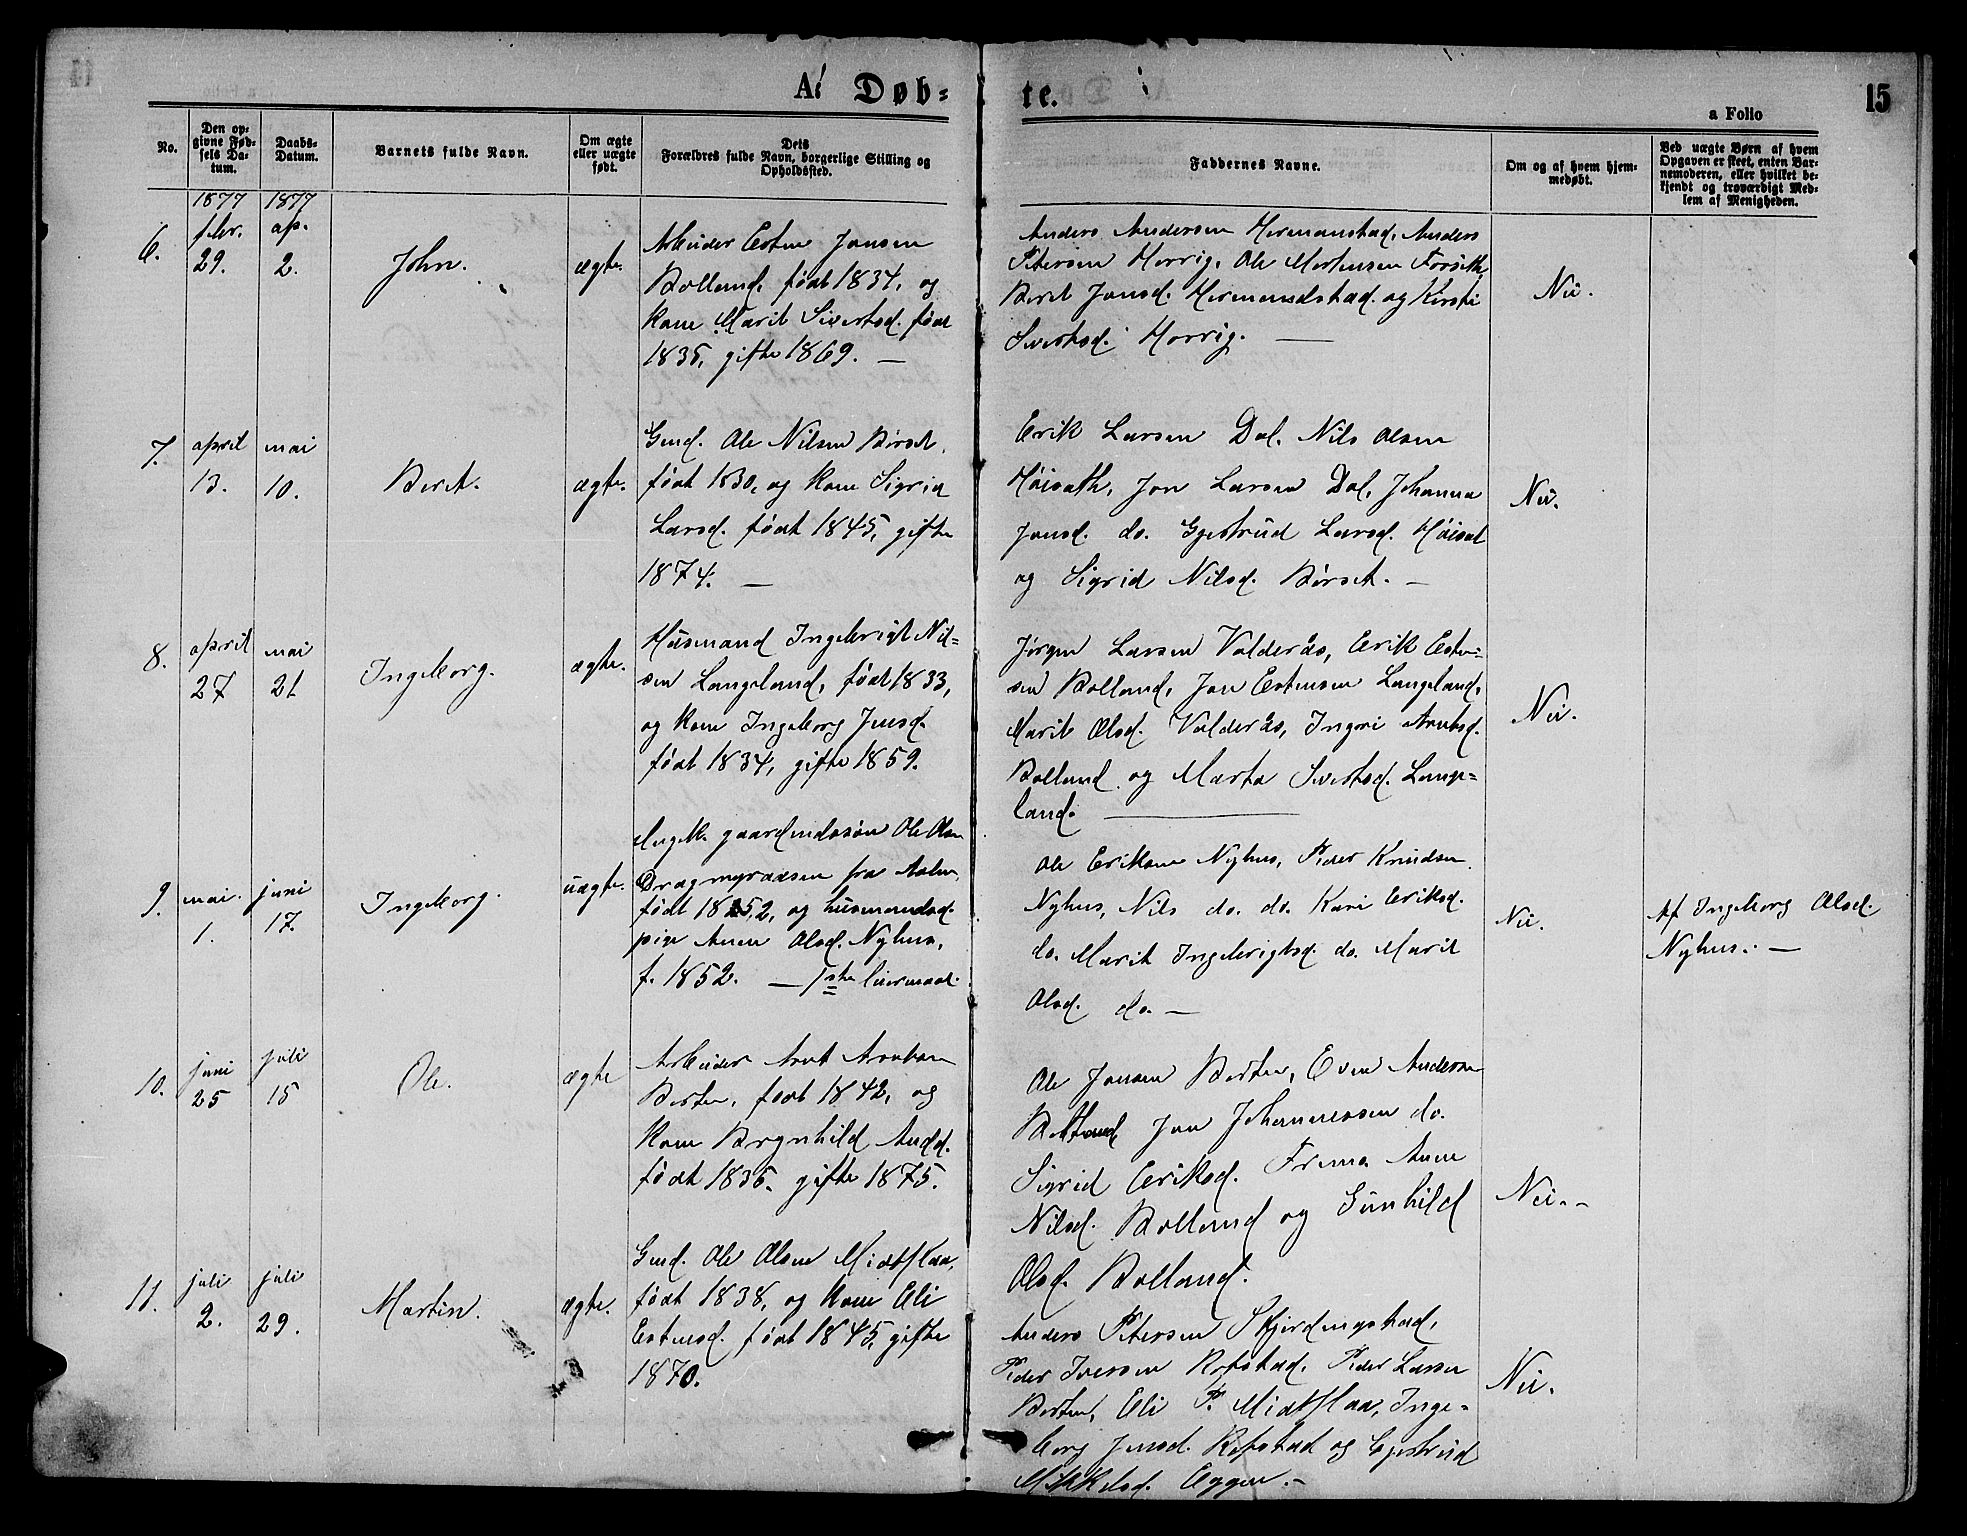 A. Døb=
te.
15
a Folio
No.
Den op=
givne Fød=
sels Da=
tum.
Daabs=
Datum.
Barnets fulde Navn.
Om ægte
eller uægte
født.
Dets
Forældres fulde Navn, borgerlige Stilling og
Opholdssted.
Faddernes Navne.
Om og af hvem hjem=
medøbt.
Ved uægte Børn af hvem
Opgaven er skeet, enten Bar=
nemoderen, eller hvilket be=
kjendt og troværdigt Med=
lem af Menigheden.
1877 1877
6. febr. 29. ap. 2. John. ægte.
Arbeider Esten Jonsen
Bolland, født 1834, og
kone Marit Sivertsd. født
1835, gifte 1869. —
Anders Andersen Hermanstad, Anders
Petersen Horrig, Ole Mortensen Forseth,
Berit Jonsd. Hermandstad og Kirsti
Sivertsd. Horrig. —
Nei.
7. april 13. mai 10. Berit. ægte.
Gmd. Ole Nilsen Børset,
født 1830, og kone Sigrid
Larsd. født 1845, gifte
1874. —
Erik Larsen Dal, Nils Olsen
Høisath, Jon Larsen Dal, Johanna
Jonsd. do. Gjertrud Larsd. Høisat
og Sigrid Nilsd. Børset. —
Nei.
8. april 27 mai 21 Ingeborg. ægte.
Husmand Ingebrigt Nil=
sen Langland, født 1833,
og kone Ingeborg Jonsd.
født 1834, gifte 1859.
Jørgen Larsen Valderås, Erik Esten=
sen Bolland, Jon Estensen Langeland,
Marit Olsd. Valderås, Ingri Arntsd.
Bolland og Marta Sivertsd. Lang=
land. —
Nei.
9. mai 1. juni 17. Ingeborg. uægte.
Ungk. gaardmdssøn Ole Olsen
Dragmyraasen fra Aalen,
født 1852, og husmandsd.
pige Anne Olsd. Nyhus,
f. 1852. — 1ste leiermaal.
Ole Eriksen Nyhus, Peder Knudsen
Nyhus, Nils do. do. Kari Eriksd.
do. Marit Ingebrigtsd. do. Marit
Olsd. do. —
Nei.
Af Ingeborg Olsd.
Nyhus. —
10. juni 25 juli 15 Ole. ægte
Arbeider Arnt Arntsen
Borten, født 1842, og
kone Brynhild Andd.
født 1835, gifte 1875.
Ole Jonsen Borten, Even Andersen
Bolland Jon Johannessen do.
Sigrid Eriksd. Anne
Nilsd. Bolland og Gunhild
Olsd. Bolland.
Nei. -
11. juli 2. juli 29. Martin. ægte.
Gmd. Ole Olsen Midtflaa,
født 1838, og kone Eli
Estensd. født 1845, gifte
1870.
Anders Petersen Skjerdingstad,
Peder Iversen Rofstad, Peder Larsen
Borten, Eli P. Midtflaa, Inge=
borg Jonsd. Rofstad og Gjertrud
Mikkelsd. Eggen. —
Nei.